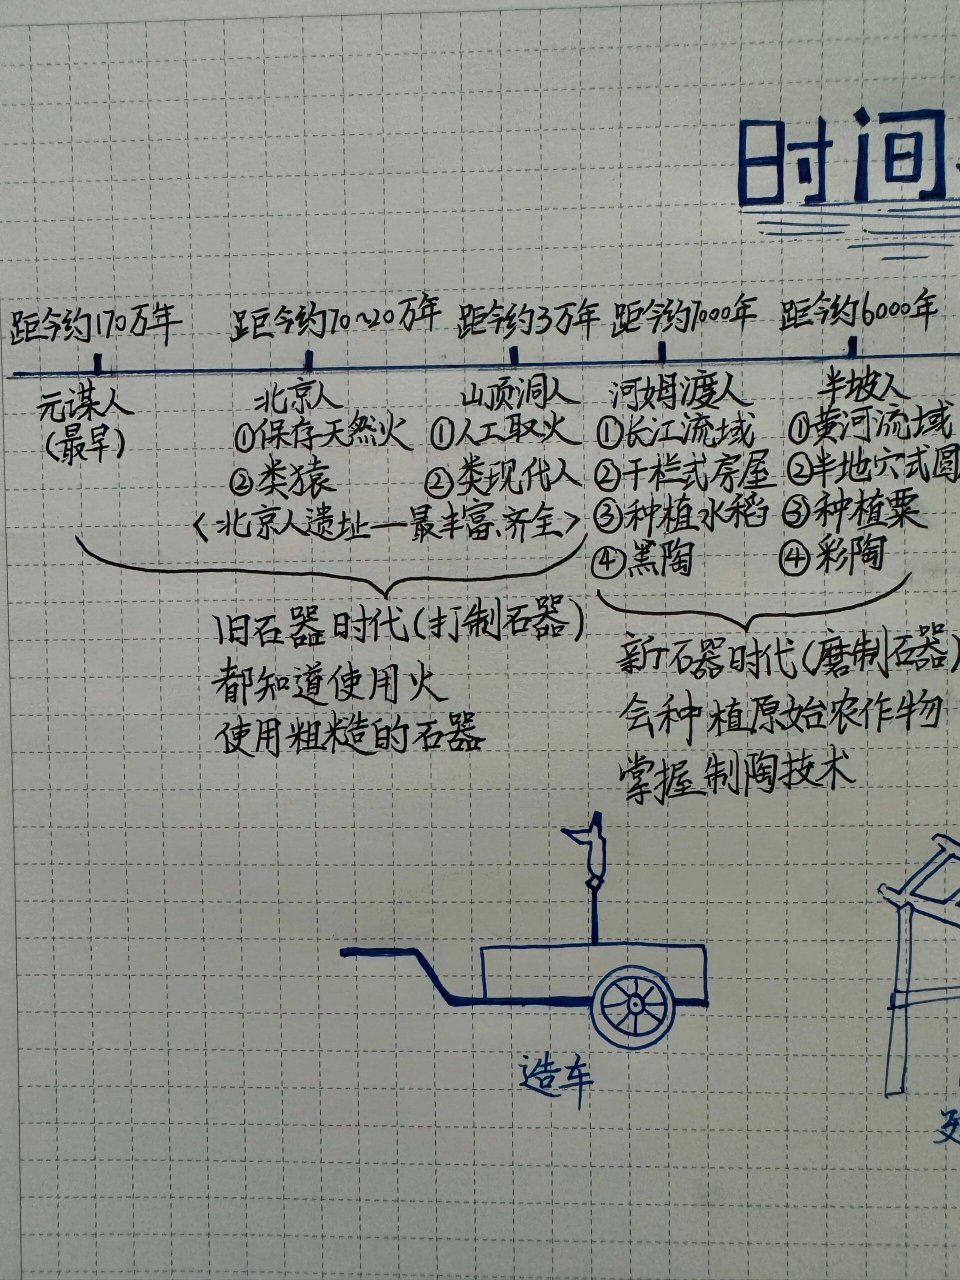 时间
距今约170万年 距今约70~20万年 距今约3万年 距今约7000年 距今约6000年
元谋人 北京人 山顶洞人 河姆渡人 半坡人
(最早) ①保存天然火 ①人工取火 ①长江流域 ①黄河流域
②类猿 ②类现代人 ②干栏式房屋 ②半地穴式圆
<北京人遗址—最丰富、齐全> ③种植水稻 ③种植粟
④黑陶 ④彩陶
旧石器时代(打制石器)
都知道使用火
使用粗糙的石器
新石器时代(磨制石器)
会种植原始农作物
掌握制陶技术
造车